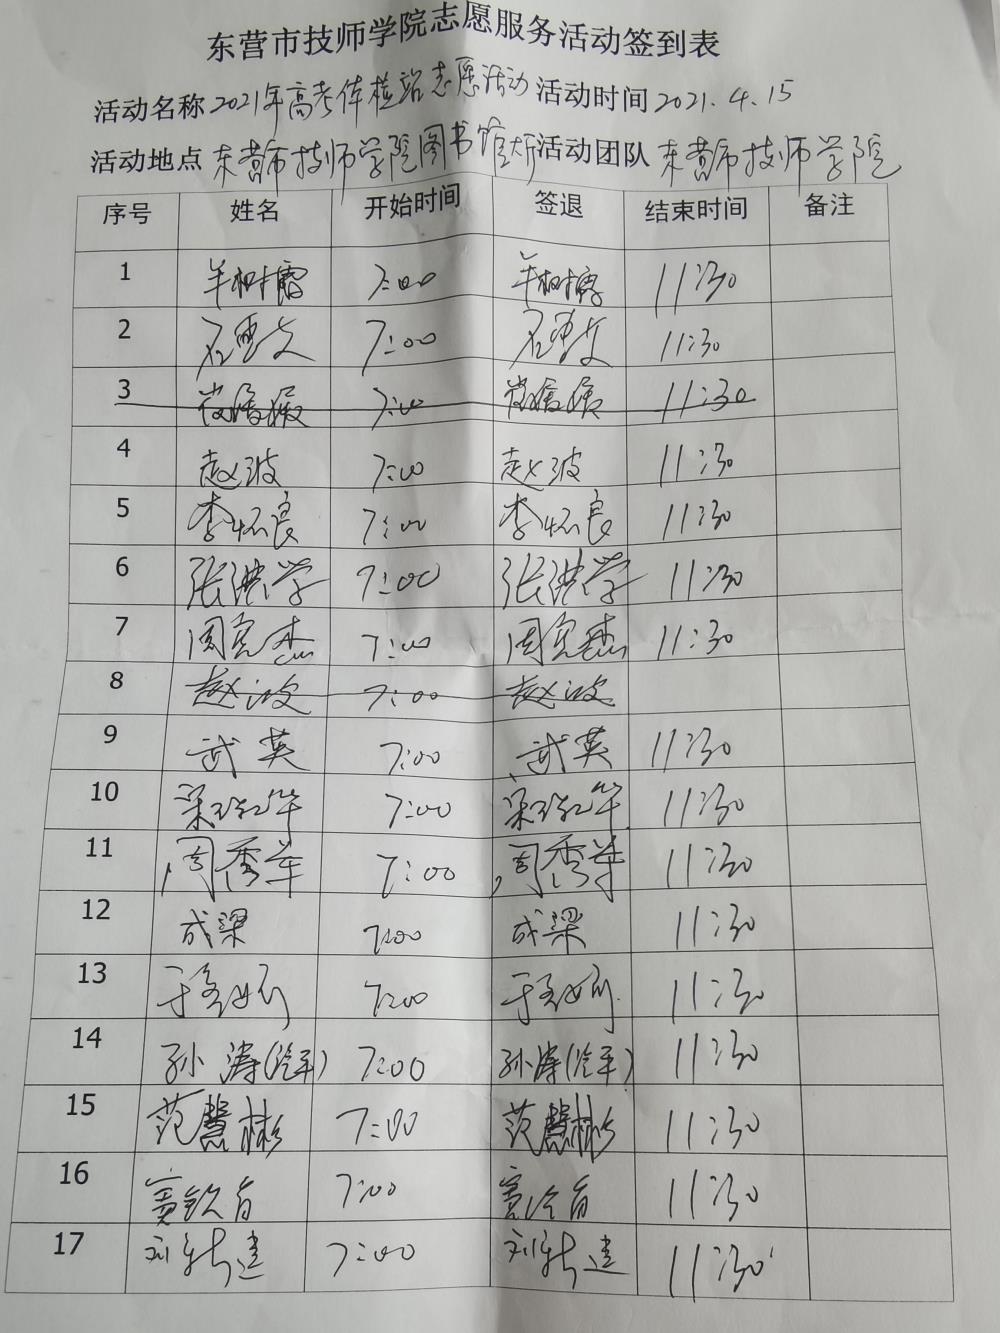 东营市技师学院志愿服务活动签到表
活动名称 2021年高考体检站志愿活动 活动时间 2021.4.15
活动地点 东营市技师学院图书馆大厅 活动团队 东营市技师学院
序号 姓名 开始时间 签退 结束时间 备注
1 7:00 11:30
2 7:00 11:30
3 7:00 11:30
4 赵波 7:00 赵波 11:30
5 李怀良 7:00 李怀良 11:30
6 张洪学 7:00 张洪学 11:30
7 周克杰 7:00 周克杰 11:30
8 赵波 7:00 赵波
9 武英 7:00 武英 11:30
10 7:00 11:30
11 周秀华 7:00 周秀华 11:30
12 成梁 7:00 成梁 11:30
13 7:00 11:30
14 孙涛(汽车) 7:00 孙涛(汽车) 11:30
15 范慧彬 7:00 范慧彬 11:30
16 7:00 11:30
17 刘新建 7:00 刘新建 11:30